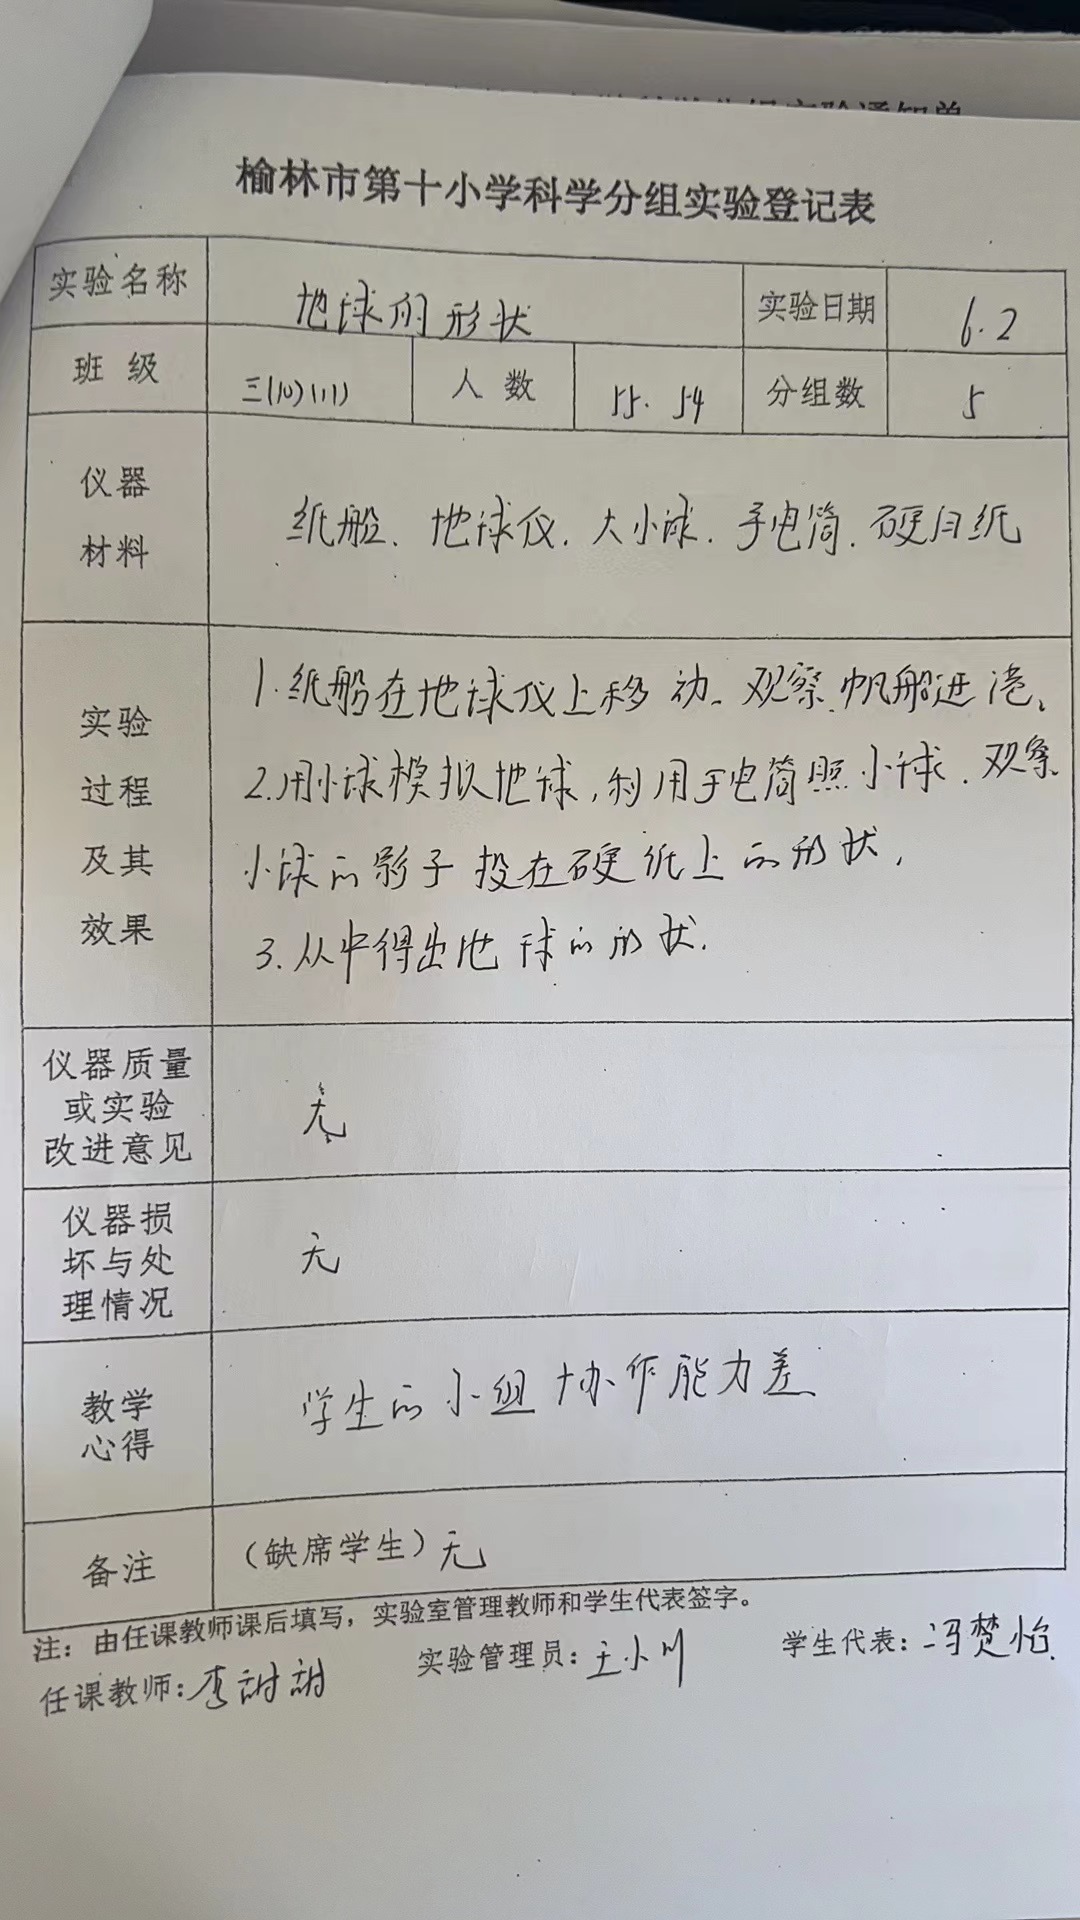 榆林市第十小学科学分组实验登记表
实验名称 地球的形状 实验日期 6.2
班级 三(10)(11) 人数 55. 54 分组数 5
仪器
材料
纸船、地球仪、大小球、手电筒、硬白纸
实验
过程
及其
效果
1.纸船在地球仪上移动、观察帆船进港。
2.用小球模拟地球,利用手电筒照小球、观察
小球的影子投在硬纸上的形状,
3.从中得出地球的形状.
仪器质量
或实验
改进意见
无
仪器损
坏与处
理情况
无
教学
心得
学生的小组协作能力差
备注 (缺席学生)无
注：由任课教师课后填写，实验室管理教师和学生代表签字。
任课教师:李甜甜 实验管理员:王小川 学生代表:冯梵怡